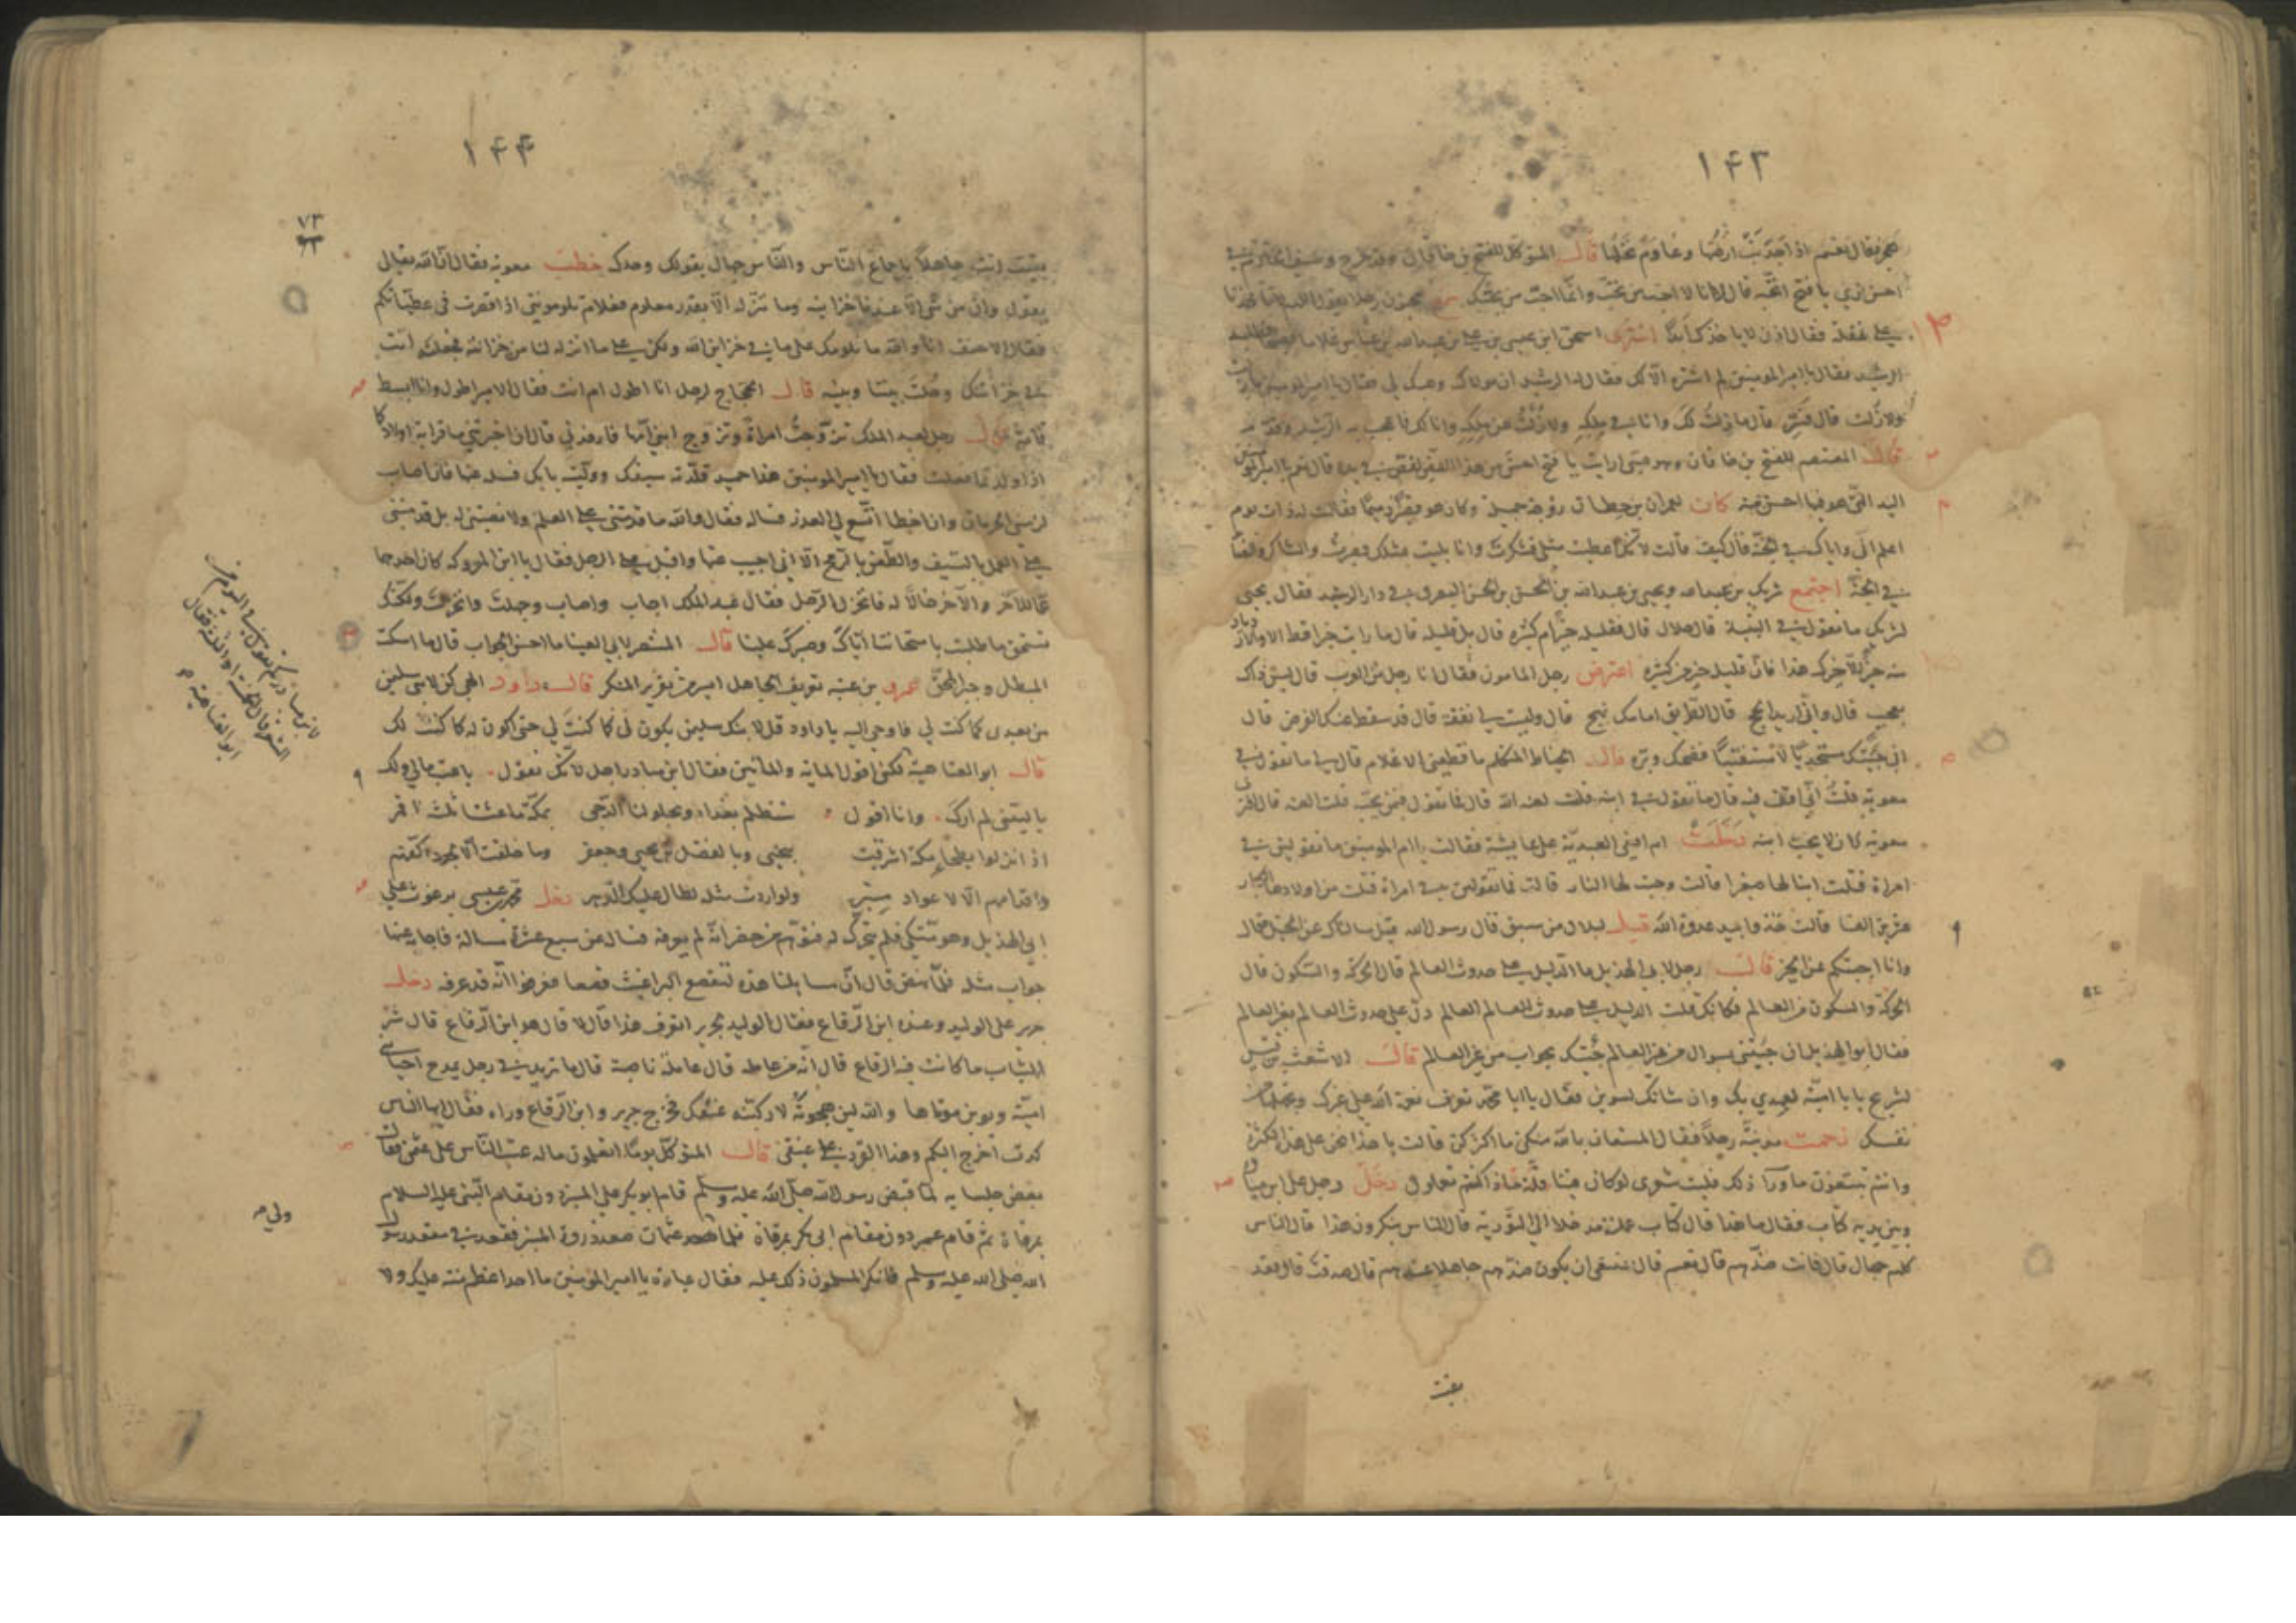 ۱۴۳
فقال نعم اذا جدبت ارضها وغاب عنها قال المتوكل للفتح بن خاقان
احسن لزي يا فتح اتحبه قال انا لا احب من تحب وانما احب من يحبك
على غفلة فقال اذن لا ياخذك ابدا اشترى اسحق ابن عيسى بن علي بن عبدالله بن عباس غلاما
الرشيد فقال يا امير المومنين لم اشتره الا لك فقال له الرشيد ان مولاك وهبك لي فقال يا امير المومنين ما زلت
ولا زلت قال فسر قال ما زلت لك وانا في ملكه ولا زلت عن ملكه وانا لك فاعجب به الرشيد
قال المعتصم للفتح بن خاقان وهو صبي ارايت يا فتح احسن من هذا الفص لفص في يده قال نعم يا امير المومنين
اليد التي هو فيها احسن منه كان لعمران بن حطان زوجة جميلة وكان هو قصيرا دميما فقالت له ذات يوم
اعلم اني واياك في الجنة قال كيف قالت لانك اعطيت مثلي فشكرت وانا بليت بمثلك فصبرت والشاكر والصابر
في الجنة اجتمع شريك بن عبدالله ويحيى بن عبدالله بن الحسن بن الحسن البصري في دار الرشيد فقال يحيى
لشريك ما تقول في النبيذ قال حلال قال فقليله خير ام كثيره قال بل قليله قال ما رايت خيرا قط الا والازدياد
منه خير الا خيرك هذا فان قليله خير من كثيره اعترض رجل المامون فقال انا رجل من العرب قال ليس ذاك
بعجب قال واني اريد الحج قال الطريق امامك نهج قال وليست لي نفقة قال قد سقط عنك الفرض قال
اني جئتك مستجديا لا مستفتيا فضحك وبره قال الخياط المتكلم ما قطعني الا غلام قال لي ما تقول في
معوية قلت اني اقف فيه قال ما تقول في ابنه قلت لعنه الله قال فما تقول فيمن يحبه قلت العنه قال افترى
معوية كان لا يحب ابنه دخلت ام افعى العبدية على عايشة فقالت يا ام المومنين ما تقولين في
امراة قتلت ابنا لها صغيرا قالت وجبت لها النار قالت فما تقولين في امراة قتلت من اولادها الكبار
عشرين الفا قالت خذوا بيد عدوة الله قيل لبلال من سبق قال رسول الله قيل سالناك عن الخيل قال
وانا اجبتكم عن الخير قال رجل لابي الهذيل ما الدليل على حدوث العالم قال الحركة والسكون قال
الحركة والسكون من العالم فكانك قلت الدليل على حدوث العالم العالم دل على حدوث العالم بغير العالم
فقال ابو الهذيل ان جئتني بسوال من غير العالم جئتك بجواب من غير العالم قال الاشعث بن قيس
لشريح يا ابا امية لعهدي بك وان شانك لشوين فقال يا ابا محمد تعرف نعمة الله على غيرك وتجهلها من
نفسك زحمت مدينية رجلا فقال المستعان بالله منكن ما اكثركن قالت يا هذا نحن على هذا الكثرة
وانتم تبتغون ما وراء ذلك فليت شعري لو كان فينا قلة ماذا كنتم تعملون دخل رجل على ابن سيابة
وبين يديه كتاب فقال ما هذا قال كتاب عملته مدخلا الى التورية قال الناس ينكرون هذا قال الناس
كلهم جهال قال فانت ضدهم قال نعم قال ينبغي ان يكون ضدهم جاهلا عندهم قال صدقت قال فقد
بقيت
۱۴۴
۷۳
بقيت انت جاهلا باجماع الناس والناس جهال بقولك وحدك خطب معوية فقال ان الله تعالى
يقول وان من شي الا عندنا خزاينه وما ننزله الا بقدر معلوم فعلام تلومونني اذا قصرت في عطياتكم
فقال الاحنف انا والله ما نلومك على ما في خزاين الله ولكن على ما انزله لنا من خزائنه فجعلته انت
في خزائنك وحلت بيننا وبينه قال الحجاج لرجل انا اطول ام انت فقال الامير اطول وانا ابسط
قامة قال رجل لعبد الملك تزوجت امراة وتزوج ابني امها فارفدني قال ان اخبرتني ما قرابة اولادكما
اذا اولدتما فعلت فقال يا امير المومنين هذا حميد قلدته سيفك ووليته بابك فسله عنها فان اصاب
لزمني الحرمان وان اخطا اتسع لي العذر فساله فقال والله ما قدمتني على العلم ولا نصبتني له بل قدمتني
على العمل بالسيف والطعن بالرمح الا اني اجيب عنها واقبل على الرجل فقال يا ابن المعروكة كان احدهما
عما للاخر والاخر خالا له فانخزل الرجل فقال عبد الملك اجاب واصاب وجهلت وانخزلت ولكنك
تستحق ما طلبت بامتحاننا اياك وصبرك علينا قال المنتصر لابي العينا ما احسن الجواب قال ما اسكت
المبطل وحير المحق عمرو بن عتبة تعريف الجاهل ايسر من تقرير المنكر قال داود الهي كن لابني سليمن
من بعدي كما كنت لي فاوحى اليه يا داود قل لابنك سليمن يكون لي كما كنت لي حتى اكون له كما كنت لك
قال ابو العتاهية لكني اقول الماية والماتين فقال ابن مناذر اجل لانك تقول يا عتب مالي ولك
يا ليتني لم ارك وانا اقول ستظلم بغداد ويجلو لنا الدجى بمكة ما عشنا ثلثة اقمر
اذا نزلوا بطحاء مكة اشرقت بيحيى وبالفضل بن يحيى وجعفر وما خلقت الا لجود اكفهم
واقدامهم الا لاعواد منبر ولو اردت مثله لطال عليك الدهر دخل محمد بن عيسى برغوث على
ابي الهذيل وهو متكي فلم يتحرك له فتوهم من حضر انه لم يعرفه فسال عن سبع عشرة مسالة فاجابه عنها
جواب مثله فلما نهض قال ان مسايلنا هذه لتقصع البراغيث قصعا فعرفوا انه قد عرفه دخل
جرير على الوليد وعنده ابن الرقاع فقال الوليد لجرير اتعرف هذا قال لا قال هو ابن الرقاع قال شر
الثياب ما كانت فيه الرقاع قال انه من عاملة قال عاملة ناصبة قال ما تريد من رجل يمدح احياء
امية ويوبن موتاها والله لين هجوته لاركبنه عنقك فخرج جرير وابن الرقاع وراه فقال ايها الناس
كدت اخرج اليكم وهذا القرد على عنقي قال المتوكل يوما اتعلمون ماله عتب الناس على عثمن فقال
بعض جلسايه لما قبض رسول الله صلى الله عليه وسلم قام ابو بكر على المنبر دون مقام النبي عليه السلام
بمرقاة ثم قام عمر دون مقام ابي بكر بمرقاة فلما قعد عثمان صعد ذروة المنبر فقعد في مقعد رسول
الله صلى الله عليه وسلم فانكر المسلمون ذلك عليه فقال عبادة يا امير المومنين ما احد اعظم منة عليك ولا
ولي